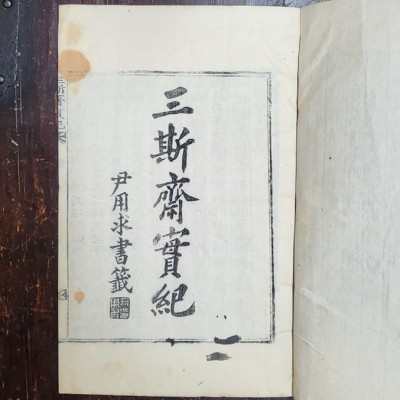 三斯齋實紀
尹用求書籤